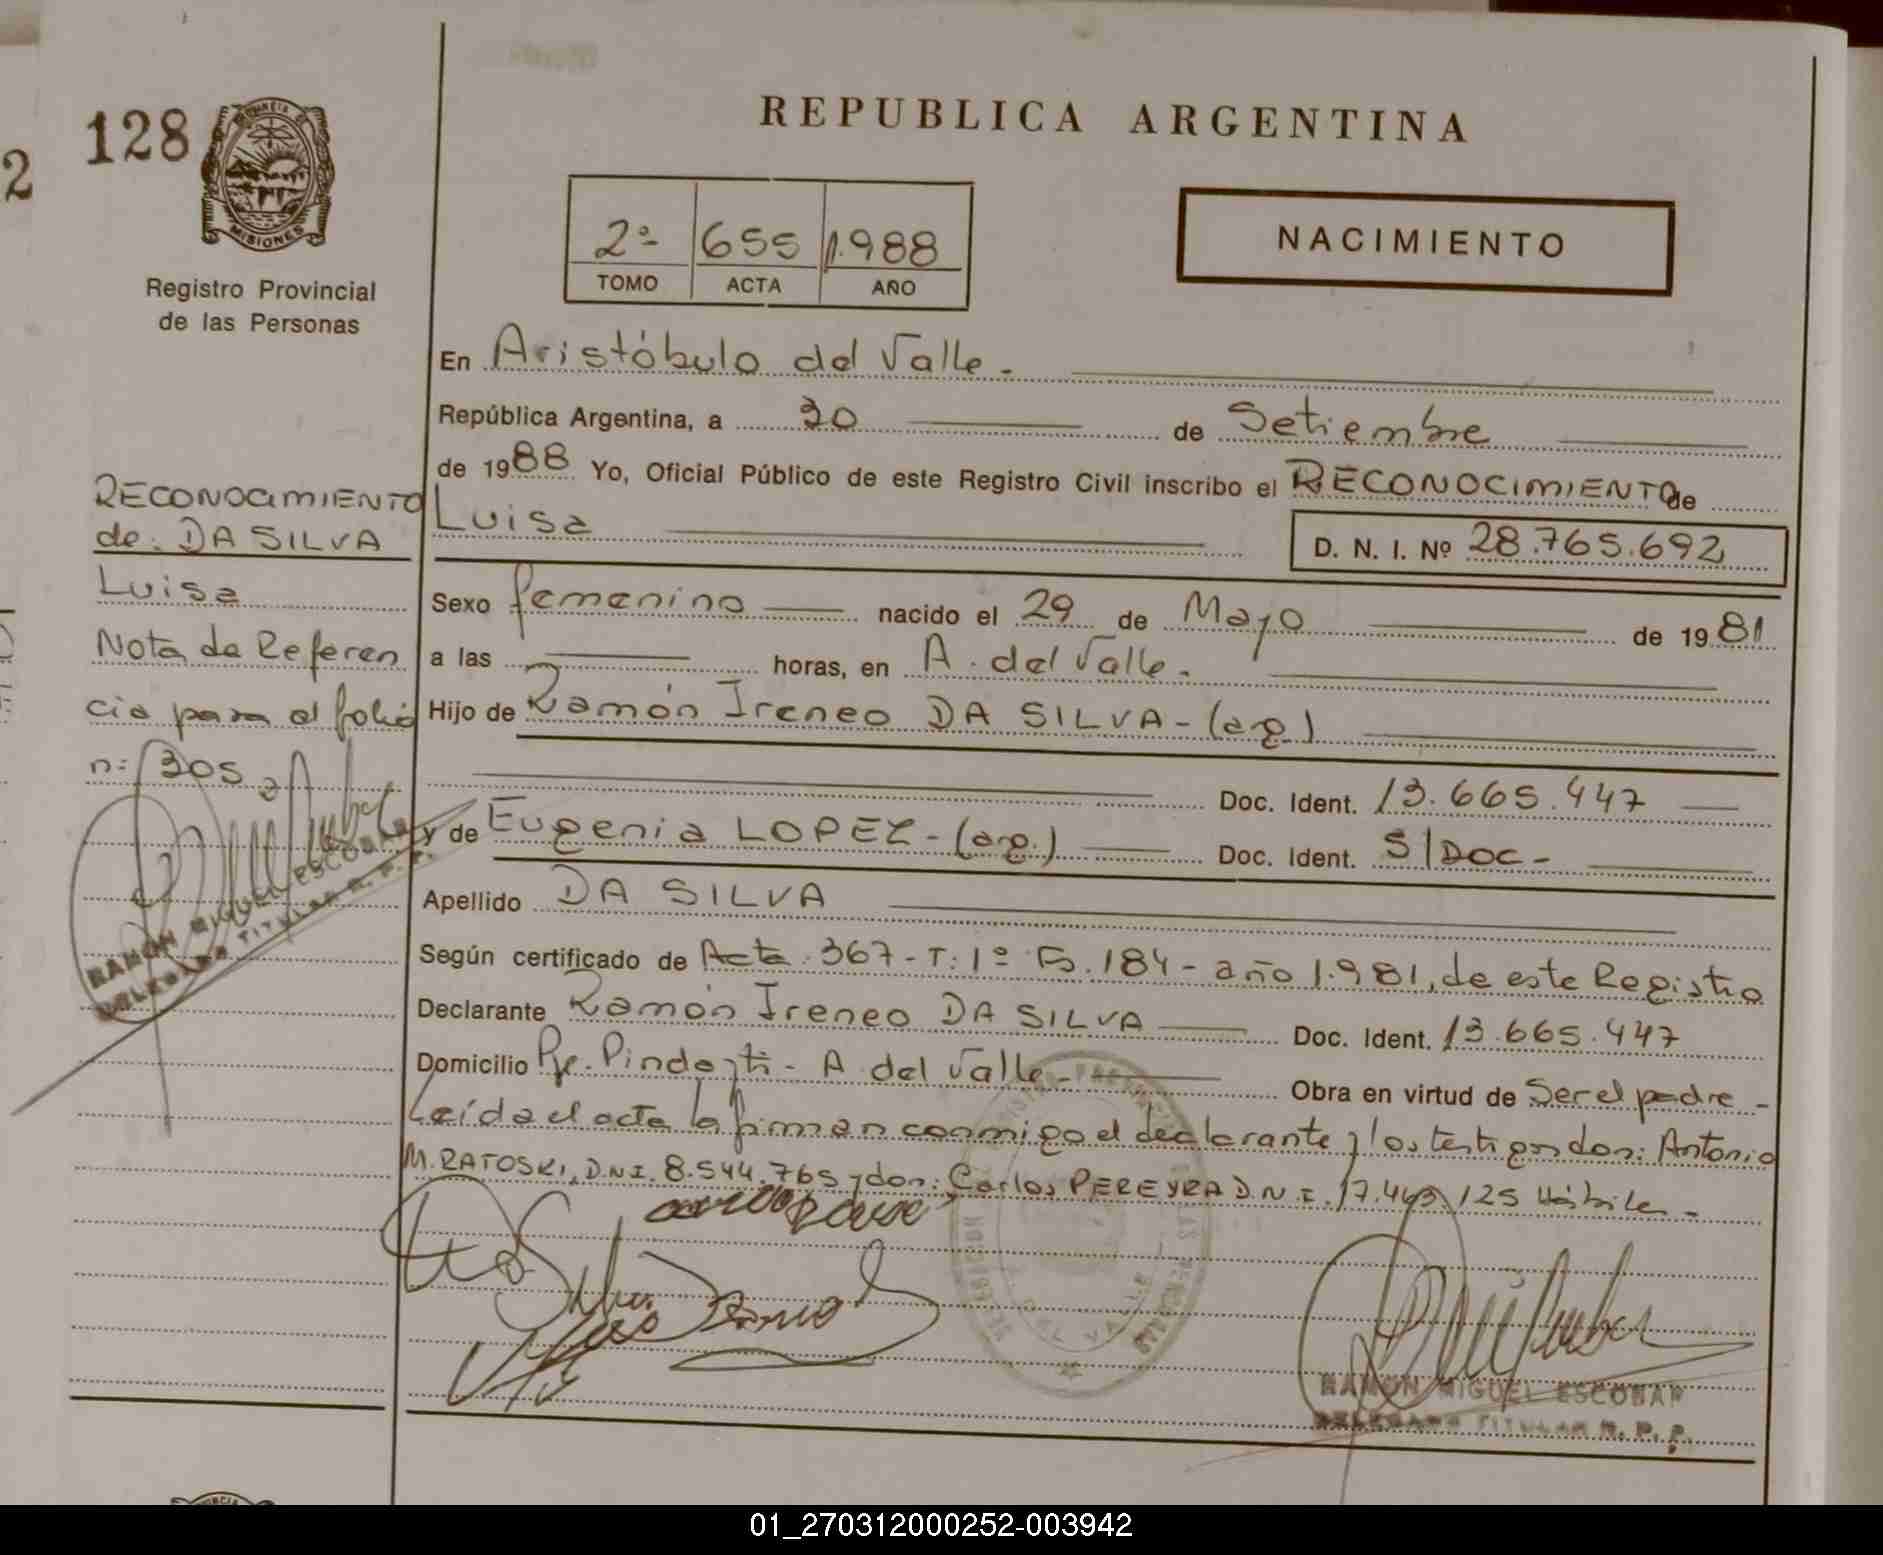 2
128
PROVINCIA DE
MISIONES
Registro Provincial
de las Personas
REPUBLICA ARGENTINA
2º 655 1.988
TOMO ACTA AÑO
NACIMIENTO
En Aristóbulo del Valle.-
República Argentina, a 30 de Setiembre
de 1988 Yo, Oficial Público de este Registro Civil inscribo el RECONOCIMIENTO de
Luisa D. N. I. Nº 28.765.692
Sexo femenino nacido el 29 de Mayo de 1981
a las horas, en A. del Valle.
Hijo de Ramón Ireneo DA SILVA-(arg)
Doc. Ident. 13.665.447
y de Eugenia LOPEZ-(arg.) Doc. Ident. S/DOC-
Apellido DA SILVA
Según certificado de Acta 367-T: 1º Fº.184-año 1.981, de este Registro
Declarante Ramón Ireneo DA SILVA Doc. Ident. 13.665.447
Domicilio Pje. Pindaytí- A del Valle- Obra en virtud de Ser el padre-
Leída el acta la firman conmigo el declarante y los testigos don: Antonio
M. RATOSKI, D.N.I. 8.544.765 y don: Carlos PEREYRA D.N.I. 17.463.125 Hábiles-
RAMON MIGUEL ESCOBAR
DELEGADO TITULAR R. P. P.
RECONOCIMIENTO
de: DA SILVA
Luisa
Nota de Referen
cia para el folio
n: 305
RAMON MIGUEL ESCOBAR
DELEGADO TITULAR R. P. P.
01_270312000252-003942